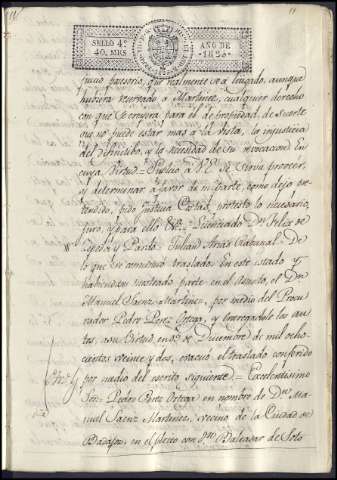 SELLO 4º
40. MRS
AÑO DE
1830
juicio posesorio, que realmente se a litigado, aunque
hubiera reservado a Martinez, cualquier derecho
con que se creyera para el de propiedad. de suerte
que no puede estar mas a la vista, la injusticia
del definitibo, y la necesidad de su rebocacion En
cuya Virtud = Suplico a V.E. se sirva proveer,
y determinar a favor de mi parte, como dejo pre-
tendido, pido justicia Costas, protesto lo necesario,
juro, y para ello &ª = Licenciado Dn. Felix de
Cepeda y Pardo = Julian Arias Rabanal = De
lo que se comunicó traslado. En este estado y
habiendose mostrado parte en el Asunto, el Dn.
Manuel Saenz Martinez, por medio del Procu-
rador Pedro Perez Ortega, y entregadole los au-
tos, con Virtud en de Diciembre de mil ocho-
cientos veinte y dos, evacuó el traslado conferido
por medio del escrito siguiente = Excelentisimo
Sor. = Pedro Perez Ortega en nombre de Dn. Ma-
nuel Saenz Martinez, vecino de la Ciudad de
Badajoz, en el pleito con Dn. Baltasar de Soto